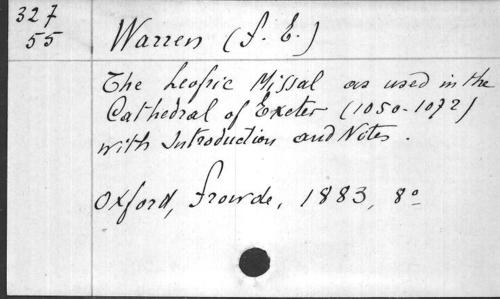 327
55
Warren (F. E.)
The Leofric Missal as used in the
Cathedral of Exeter (1050-1072)
with Introduction and Notes.
Oxford, Frowde, 1883, 8º